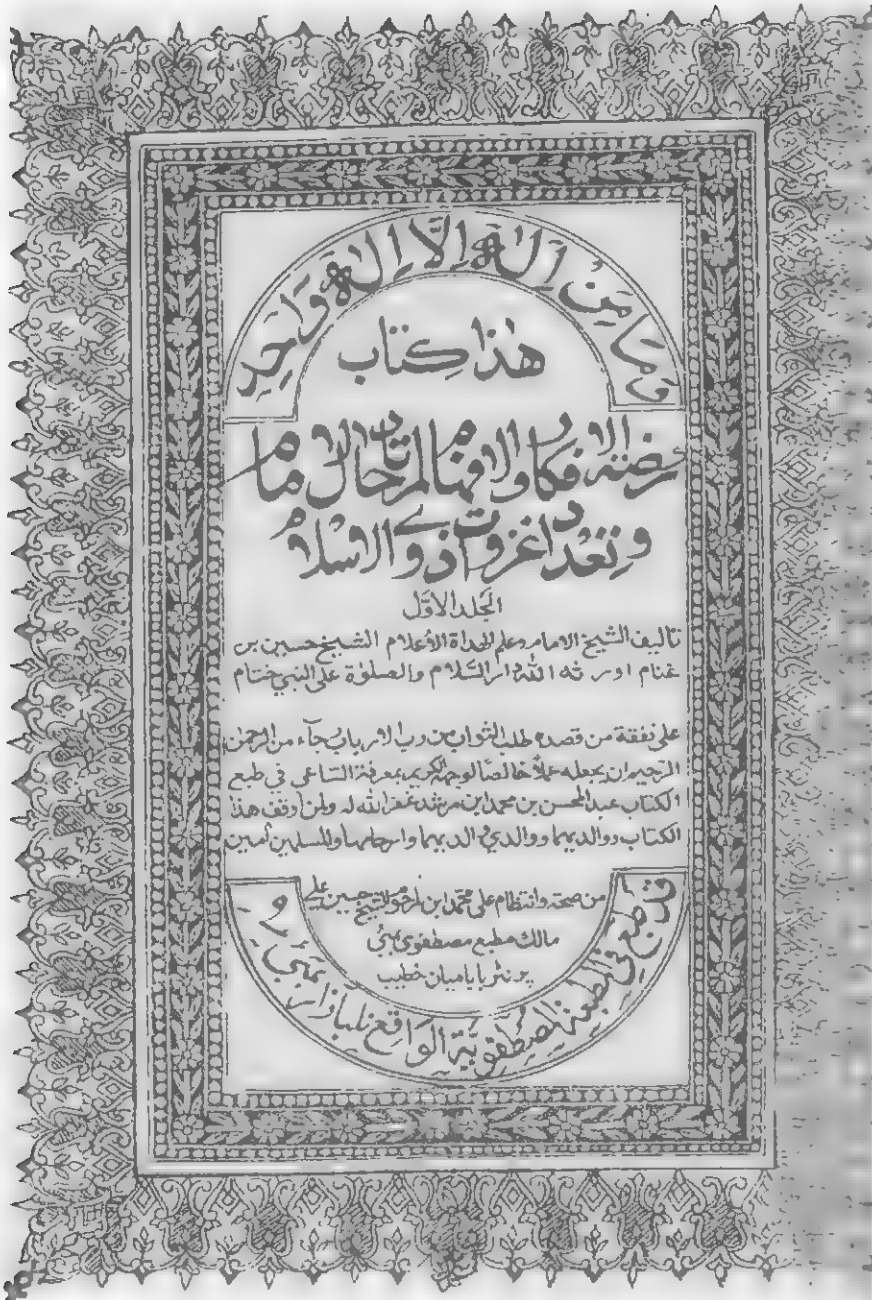 وَمَا مِنْ إِلٰهٍ إِلَّا إِلٰهٌ وَاحِدٌ
هٰذا كتاب
روضة الافكار والافهام لمرتاد حال الامام
وتعداد غزوات ذوي الاسلام
الجلد الاوّل
تاليف الشيخ الامام وعلم الهداة الأعلام الشيخ حسين بن
غنام اورثه الله دار السّلام والصلوٰة على النبي ختام
على نفقة من قصده طلب الثواب من رب الارباب رجآء من الرحمٰن
الرحيم ان يجعله عملاً خالصًا لوجهه الكريم بمعرفة الساعى في طبع
الكتاب عبد المحسن بن محمد ابن مرشد غفر الله له ولمن اوقف هذا
الكتاب ووالديهما ووالدي والديهما وارحامهما والمسلمين أمين
من صحة وانتظام على محمّد ابن المرحوم الشيخ حسين علي
مالك مطبع مصطفوي بمبئي
پرنٹر بابا ميان خطيب
قد طبع في المطبعة المصطفوية الواقع بمبئي